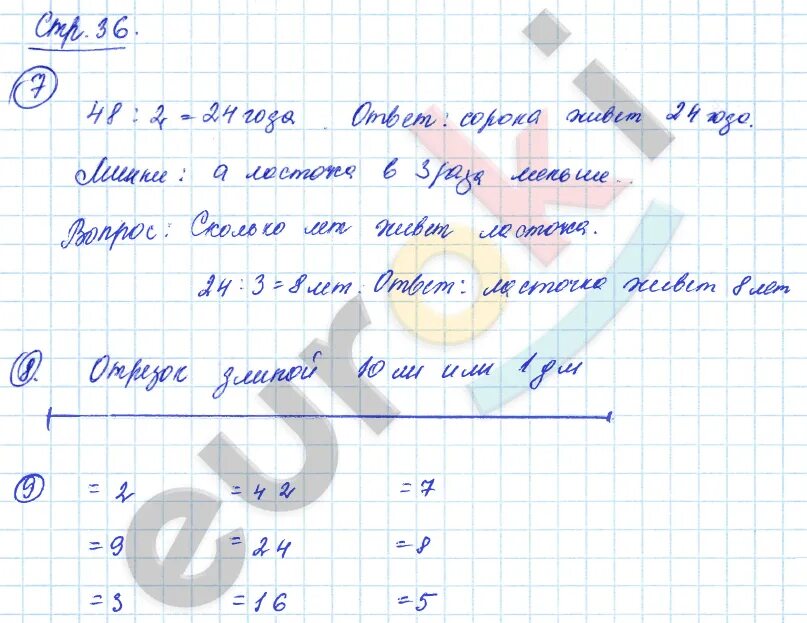 Стр. 36.
7
48 : 2 = 24 года. Ответ: сорока живет 24 года.
а ластожа в 3 раза меньше.
Вопрос: Сколько лет живет ластожа.
24 : 3 = 8 лет. Ответ: ласточка живет 8 лет
8. Отрезок длиной 10 или 1 дм
9 = 2 = 42 = 7
= 9 = 24 = 8
= 3 = 16 = 5
euroki